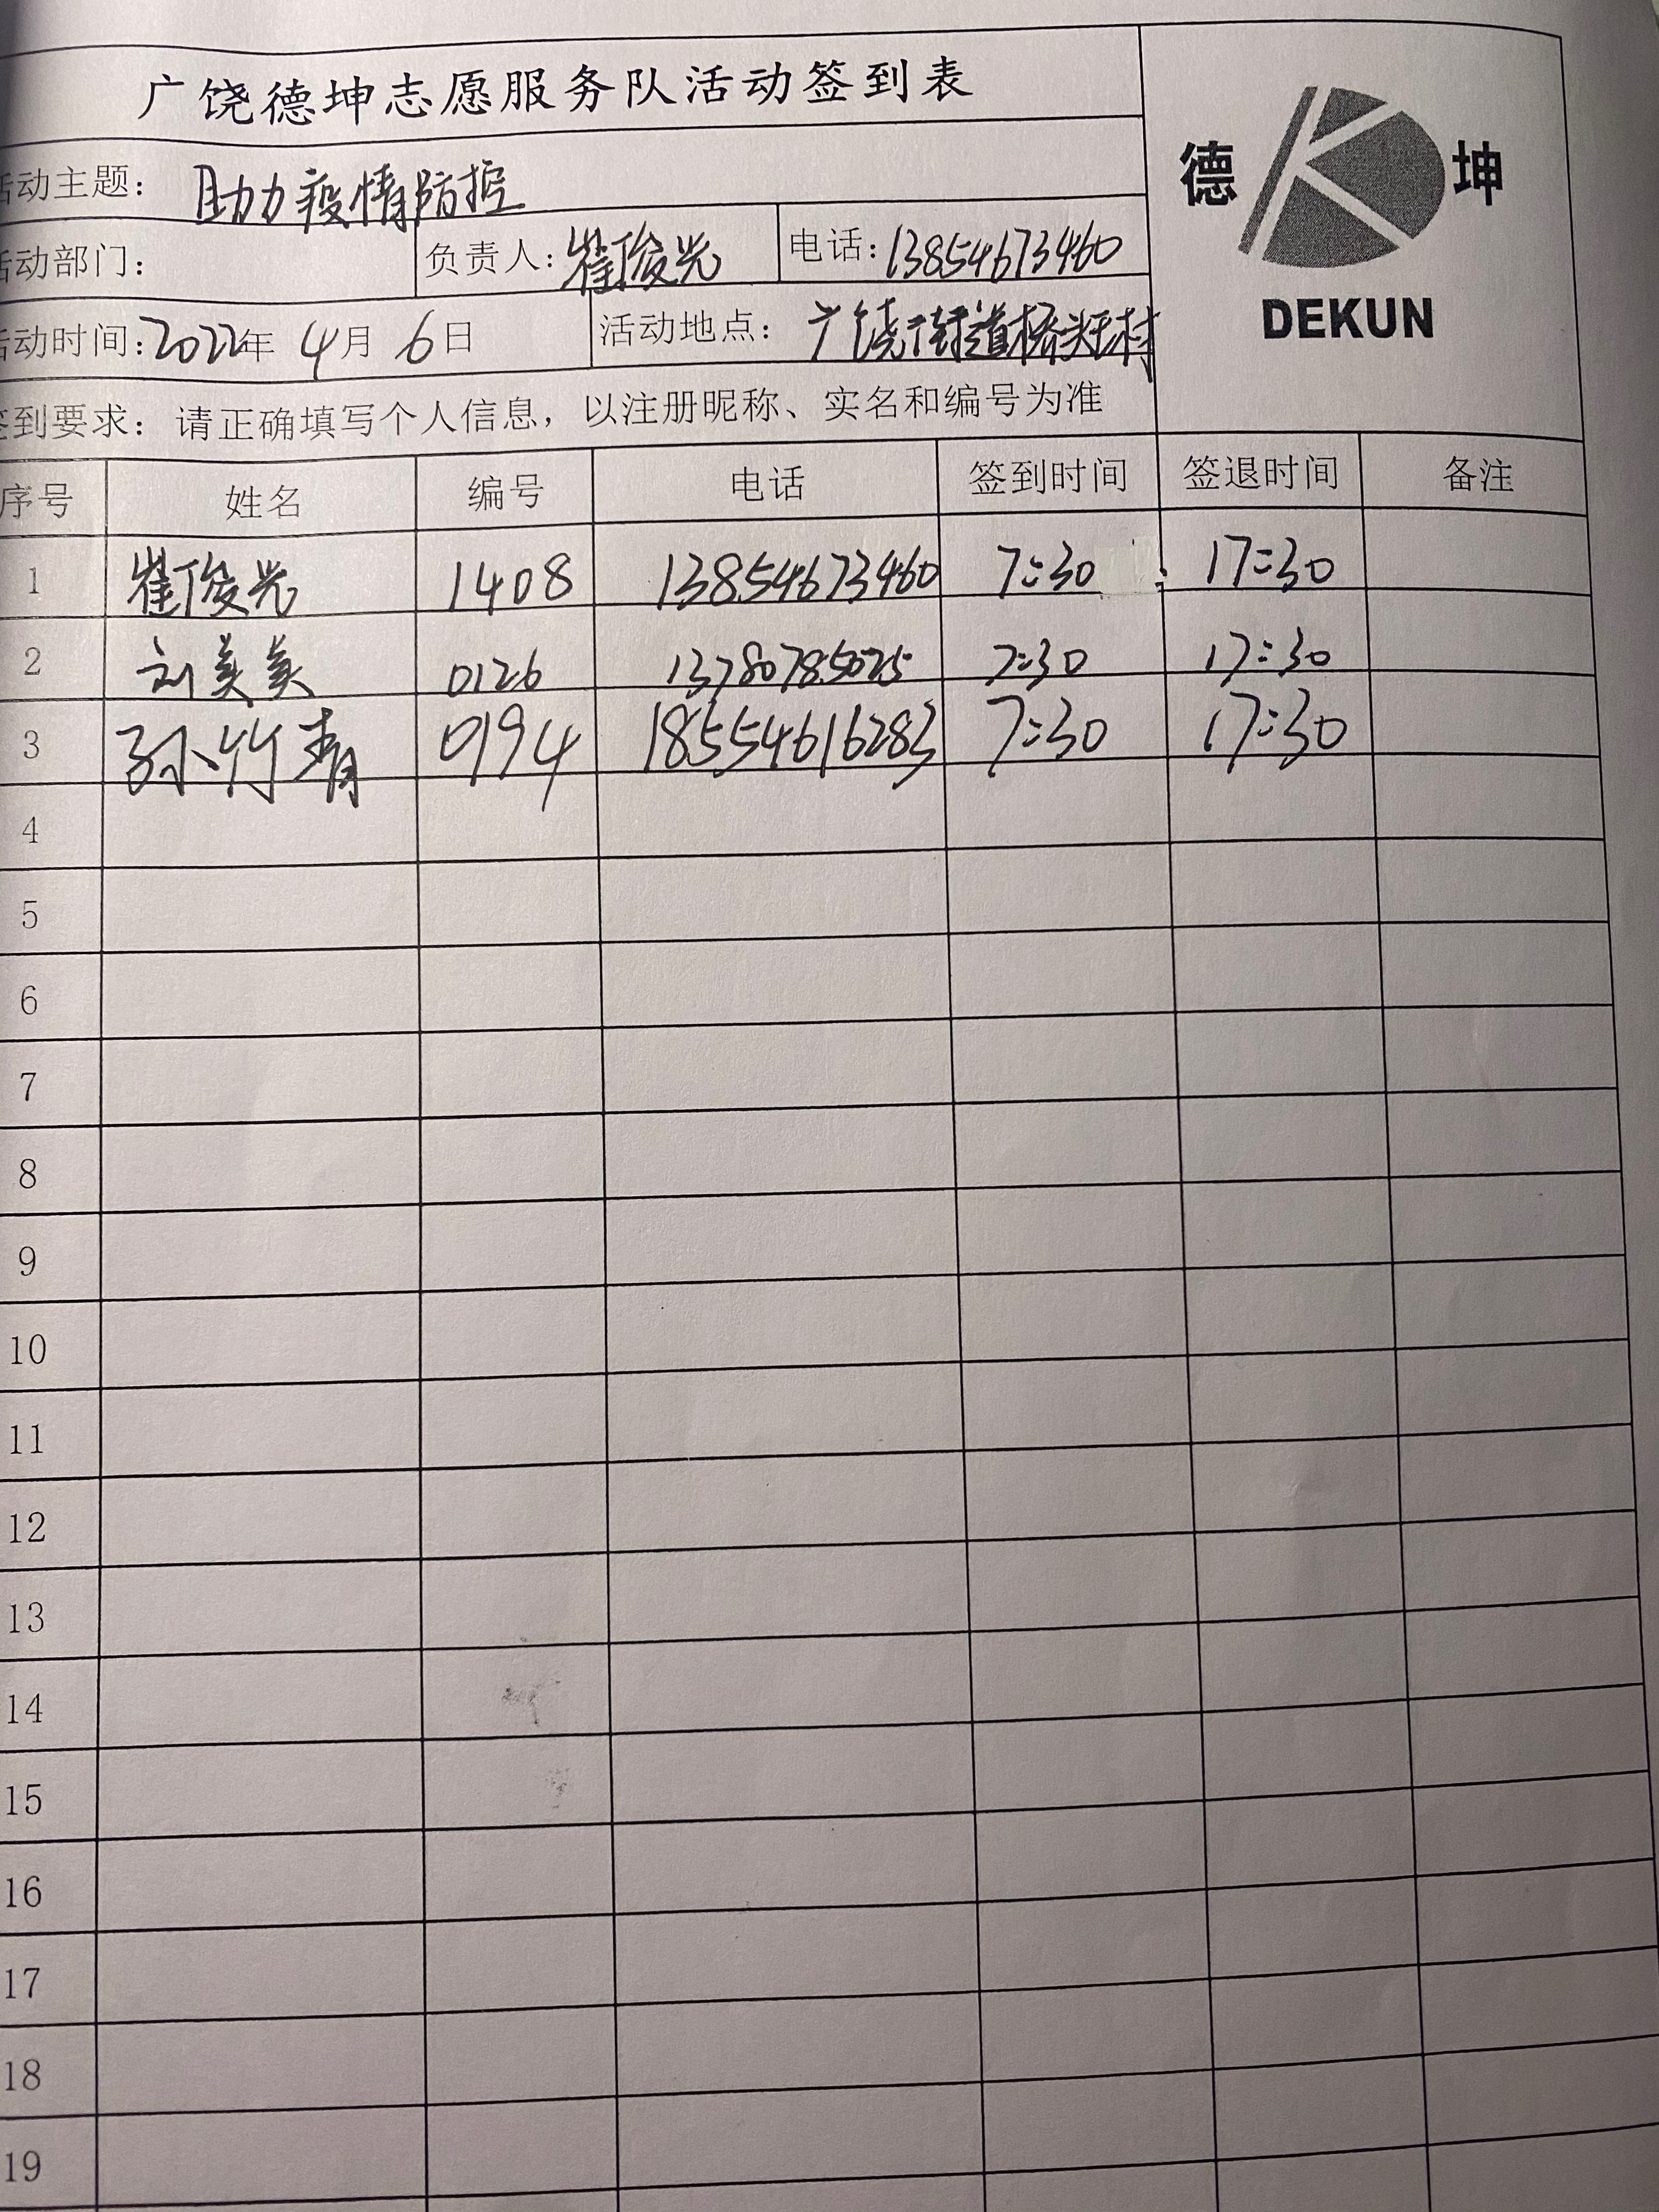 广饶德坤志愿服务队活动签到表
德 坤
DEKUN
活动主题： 助力疫情防控
活动部门： 负责人：崔俊光 电话：13854673460
活动时间：2022年 4月 6日 活动地点： 广饶街道桥头王村
签到要求：请正确填写个人信息，以注册昵称、实名和编号为准
序号 姓名 编号 电话 签到时间 签退时间 备注
1 崔俊光 1408 13854673460 7:30 17:30
2 刘美美 0126 13780785025 7:30 17:30
3 孙竹青 0194 18554616283 7:30 17:30
4
5
6
7
8
9
10
11
12
13
14
15
16
17
18
19